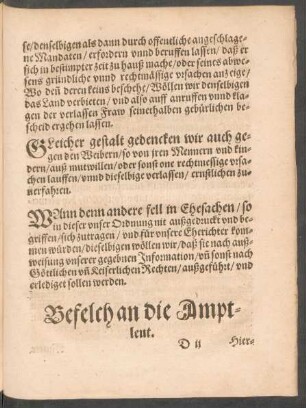 se/denselbigen als dann durch offentliche angeschlage-
ne Mandaten/erfordern vnnd beruffen lassen/daß er
sich in bestimpter zeit zu hauß mache/oder seines abwe-
sens gründliche vnnd rechtmässige vrsachen anzeige/
Wo deñ deren keins beschehe/Wöllen wir denselbigen
das Land verbieten/vnd also auff anruffen vnnd kla-
gen der verlassen Fraw seinethalben gebürlichen be-
scheid ergehen lassen.
GLeicher gestalt gedencken wir auch ge-
gen den Weibern/so von jren Mennern vnd kin-
dern/auß mutwillen/oder sonst one rechtmessige vrsa-
chen lauffen/vnnd dieselbige verlassen/ernstlichen zu-
uerfahren.
WAnn denn andere fell in Ehesachen/so
in dieser vnser Ordnung nit außgedruckt vnd be-
griffen/sich zutragen/vnd für vnsere Eherichter kom-
men würden/dieselbigen wöllen wir/daß sie nach auß-
weisung vnserer gegebnen Information/vñ sonst nach
Göttlichen vñ Keiserlichen Rechten/außgeführt/vnd
erlediget sollen werden.
Befelch an die Ampt-
leut.
D ij Hier-